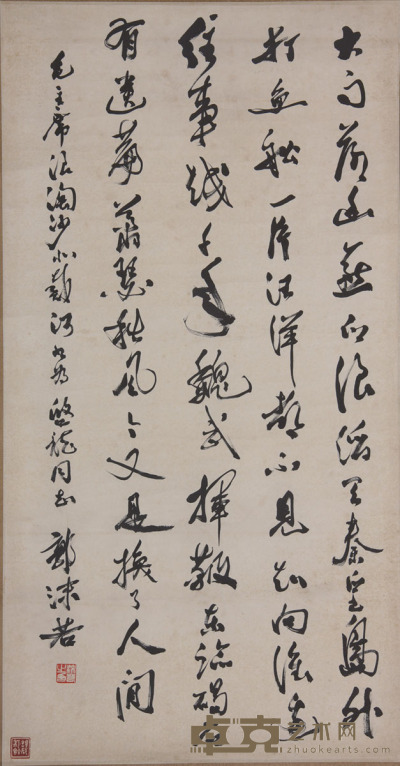 大雨落幽燕白浪滔天秦皇岛外
打鱼船一片汪洋都不见知向谁边
往事越千年魏武挥鞭东临碣石
有遗篇萧瑟秋风今又是换了人间
毛主席浪淘沙北戴河 为 龙同志 郭沫若
卓克艺术网
zhuokearts.com